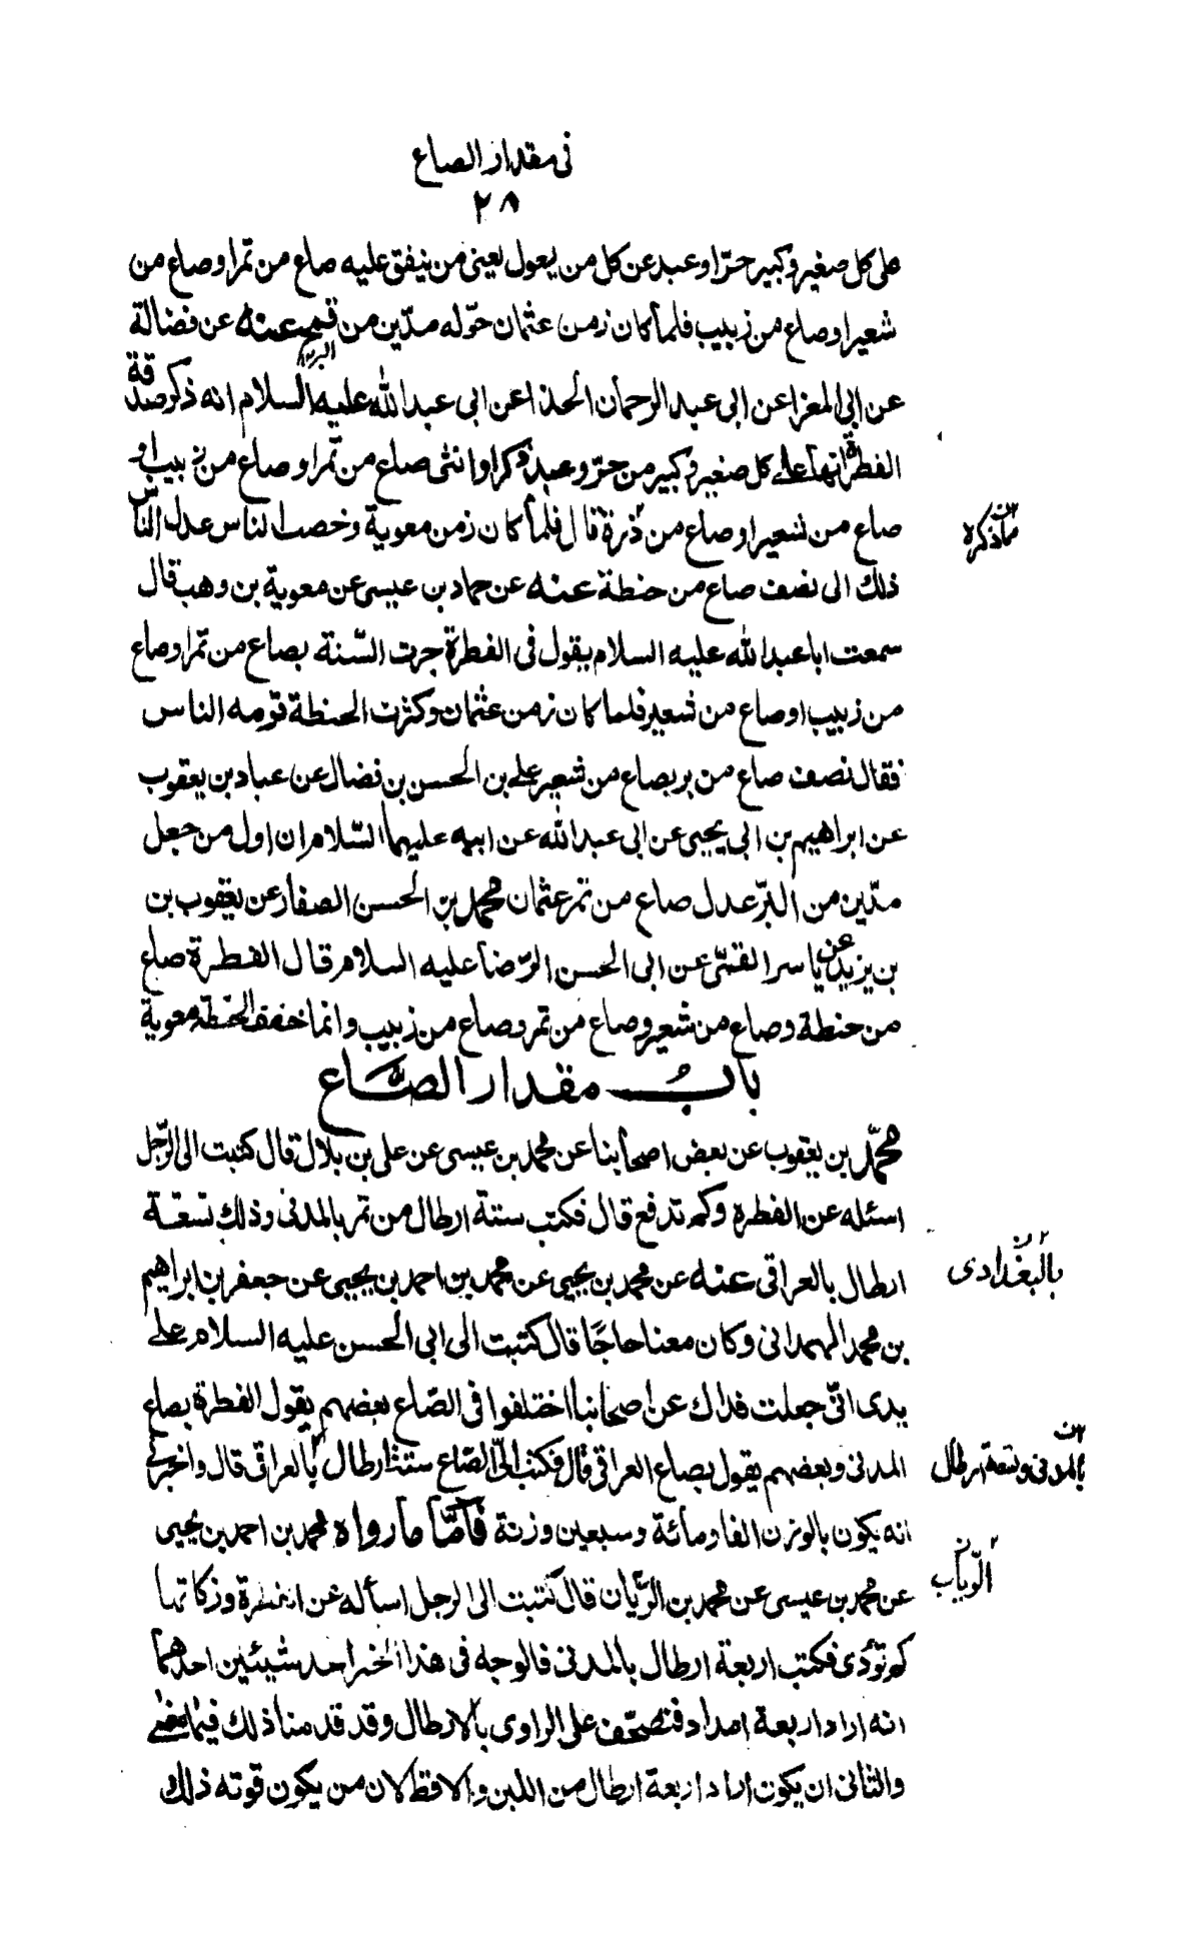 في مقدار الصاع
٢٨
على كل صغير وكبير حرّ او عبد عن كل من يعول يعنى من ينفق عليه صاع من تمر او صاع من
شعير او صاع من زبيب فلما كان زمن عثمان حوّله مدّين من قمح عنه عن فضالة
عن ابى المغرا عن ابى عبد الرحمان الحذا عن ابى عبد الله عليه السلام انه ذكر صدقة
الفطرة انها على كل صغير وكبير من حرّ وعبد ذكر او انثى صاع من تمر او صاع من زبيب او
صاع من شعير او صاع من ذرة قال فلما كان زمن معوية وخصب الناس عدل الناس
ما ذكره
ذلك الى نصف صاع من حنطة عنه عن حماد بن عيسى عن معوية بن وهب قال
سمعت ابا عبد الله عليه السلام يقول فى الفطرة جرت السّنة بصاع من تمر او صاع
من زبيب او صاع من شعير فلما كان زمن عثمان وكثرت الحنطة قومه الناس
فقال نصف صاع من بر بصاع من شعير على بن الحسن بن فضال عن عباد بن يعقوب
عن ابراهيم بن ابى يحيى عن ابى عبد الله عن ابيه عليهما السّلام ان اول من جعل
مدّين من البرّ عدل صاع من تمر عثمان محمد بن الحسن الصفار عن يعقوب بن
بن يزيد عن ياسر القمّى عن ابى الحسن الرّضا عليه السلام قال الفطرة صاع
من حنطة وصاع من شعير وصاع من تمر وصاع من زبيب وانما خفف الحنطة معوية
باب مقدار الصّاع
محمّد بن يعقوب عن بعض اصحابنا عن محمد بن عيسى عن على بن بلال قال كتبت الى الرّجل
اسئله عن الفطرة وكم تدفع قال فكتب ستة ارطال من تمر بالمدنى وذلك تسعة
بالبغدادى
ارطال بالعراقى عنه عن محمد بن يحيى عن محمد بن احمد بن يحيى عن جعفر بن ابراهيم
بن محمد الهمدانى وكان معنا حاجًا قال كتبت الى ابى الحسن عليه السلام على
يدى ابى جعلت فداك عن اصحابنا اختلفوا فى الصّاع بعضهم يقول الفطرة بصاع
المدنى وبعضهم يقول بصاع العراقى قال فكتب الىّ الصّاع ستة ارطال بالعراقى قال واخبرنى
بالمدنى وتسعة ارطال
انه يكون بالوزن الفا ومائة وسبعين وزنة فأمّا ما رواه محمد بن احمد بن يحيى
عن محمد بن عيسى عن محمد بن الرّيان قال كتبت الى الرجل اسأله عن الفطرة وزكاتها
كم تؤدى فكتب اربعة ارطال بالمدنى فالوجه فى هذا الخبر احد شيئين احدهما
انه اراد اربعة امداد فتصحّف على الراوى بالارطال وقد قدمنا ذلك فيما مضى
والثانى ان يكون اراد اربعة ارطال من اللبن والاقط لان من يكون قوته ذلك